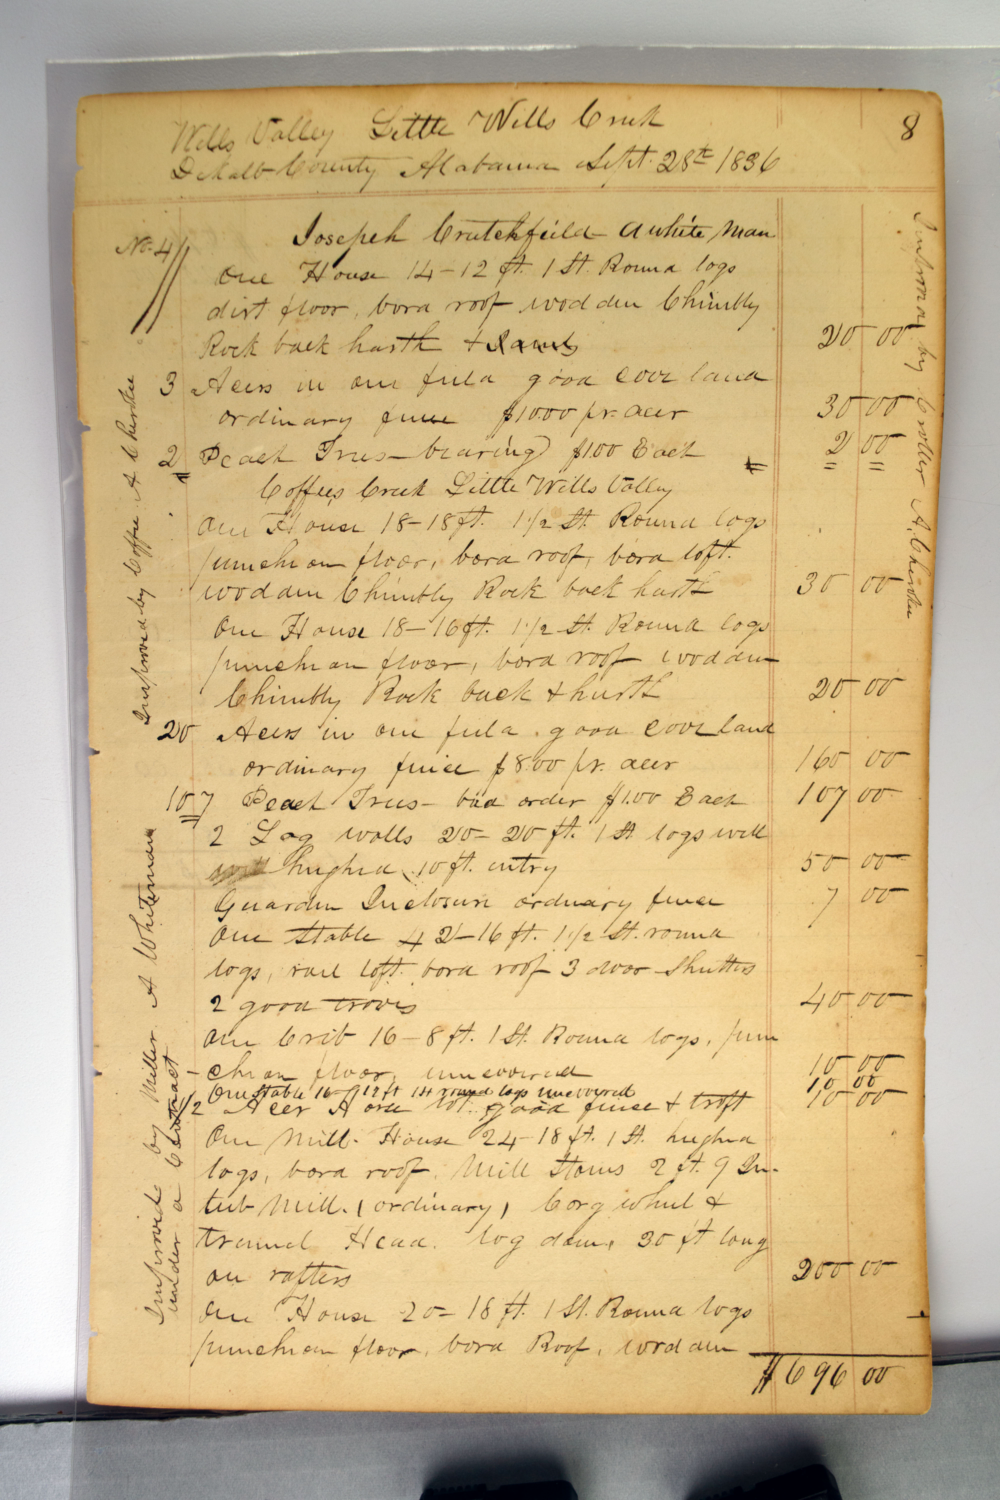 8
Wills Valley Little Wills Creek
DeKalb County Alabama Sept. 28th 1836
No. 4 Joseph Crutchfeild a white man
One House 14 - 12 ft. 1 St. Round logs
dirt floor, bord roof wodden Chimbly
Rock back harth + 20 00
3 Acers in one feild good cove land
ordinary fence $10.00 pr. acer 30 00
2 Peach Trees - bearing) $1.00 Each 2 00
Coffees Creek Little Wills Valley
One House 18 - 18 ft. 1 1/2 St. Round logs
puncheon floor, bord roof, bord loft.
woddam Chimbly Rock back harth 30 00
One House 18 - 16 ft. 1 1/2 St. Round logs
puncheon floor, bord roof wodden
Chimbly Rock back + harth 20 00
20 Acers in one feild good cove land
ordinary fence $8.00 pr. acer 160 00
107 Peach Trees - bad order $1.00 Each 107 00
2 Log walls 20 - 20 ft. 1 St. logs will
hughed 10 ft. entry 50 00
Guarden Inclosure ordinary fence 7 00
One Stable 42 - 16 ft. 1 1/2 St. round
logs, rail loft. bord roof 3 door Shutters
2 good trovis 40 00
One Crib 16 - 8 ft. 1 St. Round logs, pun
cheon floor, uncovered 10 00
One Stable 16 - 12 ft 1 St round logs uncovered 10 00
1/2 Acer Hors lot. good fence + troft 10 00
One Mill House 24 - 18 ft. 1 St. hughed
logs, bord roof. Mill Stones 2 ft. 9 In.
tub Mill. (ordinary) Corg wheel +
trunnel Head. log dam, 30 ft long
on rafters 200 00
One House 20 - 18 ft. 1 St. Round logs
puncheon floor, bord Roof, wooden
$696 00
Improved by Coffee A Cherokee
Improved by Miller A Whiteman
under a Contract
Improved by Croller A. Cherokee